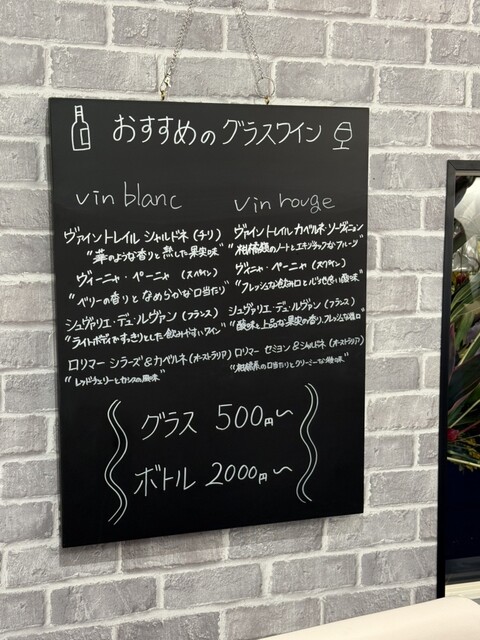 おすすめのグラスワイン
vin blanc
ヴァイントレイル シャルドネ (チリ)
"華のような香りと熟した果実味"
ヴィーニャ・ペーニャ (スペイン)
"ベリーの香りとなめらかな口当たり"
シュヴァリエ・デュ・ルヴァン (フランス)
"ライトボディですっきりとした飲みやすいワイン"
ロリマー シラーズ&カベルネ (オーストラリア)
"レッドチェリーとカシスの風味"
vin rouge
ヴァイントレイル カベルネ・ソーヴィニョン
"柑橘類のノートとエキゾチックなフルーツ"
ヴィニャ・ペーニャ (スペイン)
"フレッシュな飲み口と心地良い酸味"
シュヴァリエ・デュ・ルヴァン (フランス)
"酸味と上品な果実の香り、フレッシュな辛口"
ロリマー セミヨン&シャルドネ (オーストラリア)
"柑橘系の口当たりとクリーミーな酸味"
グラス 500円〜
ボトル 2000円〜